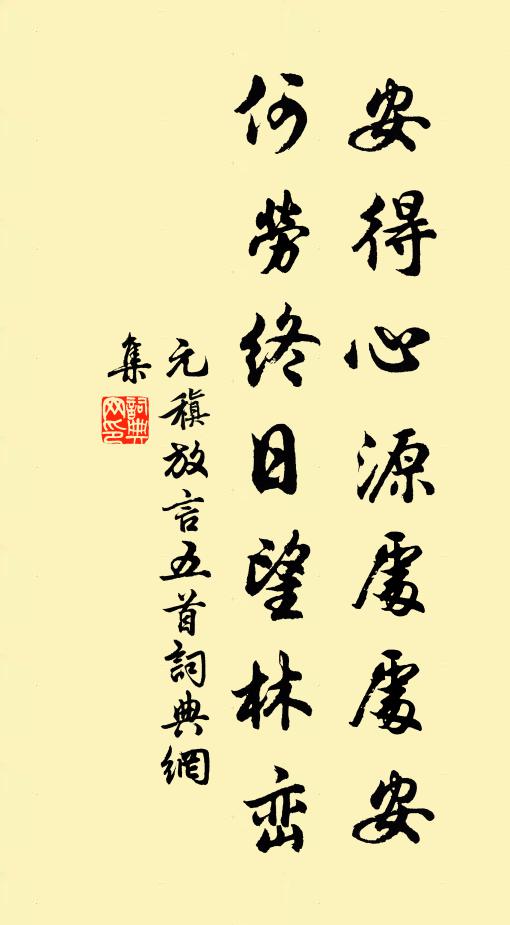 安得心源處處安
何勞終日望林峦
元稹放言五首詞典網
集
詞典网印